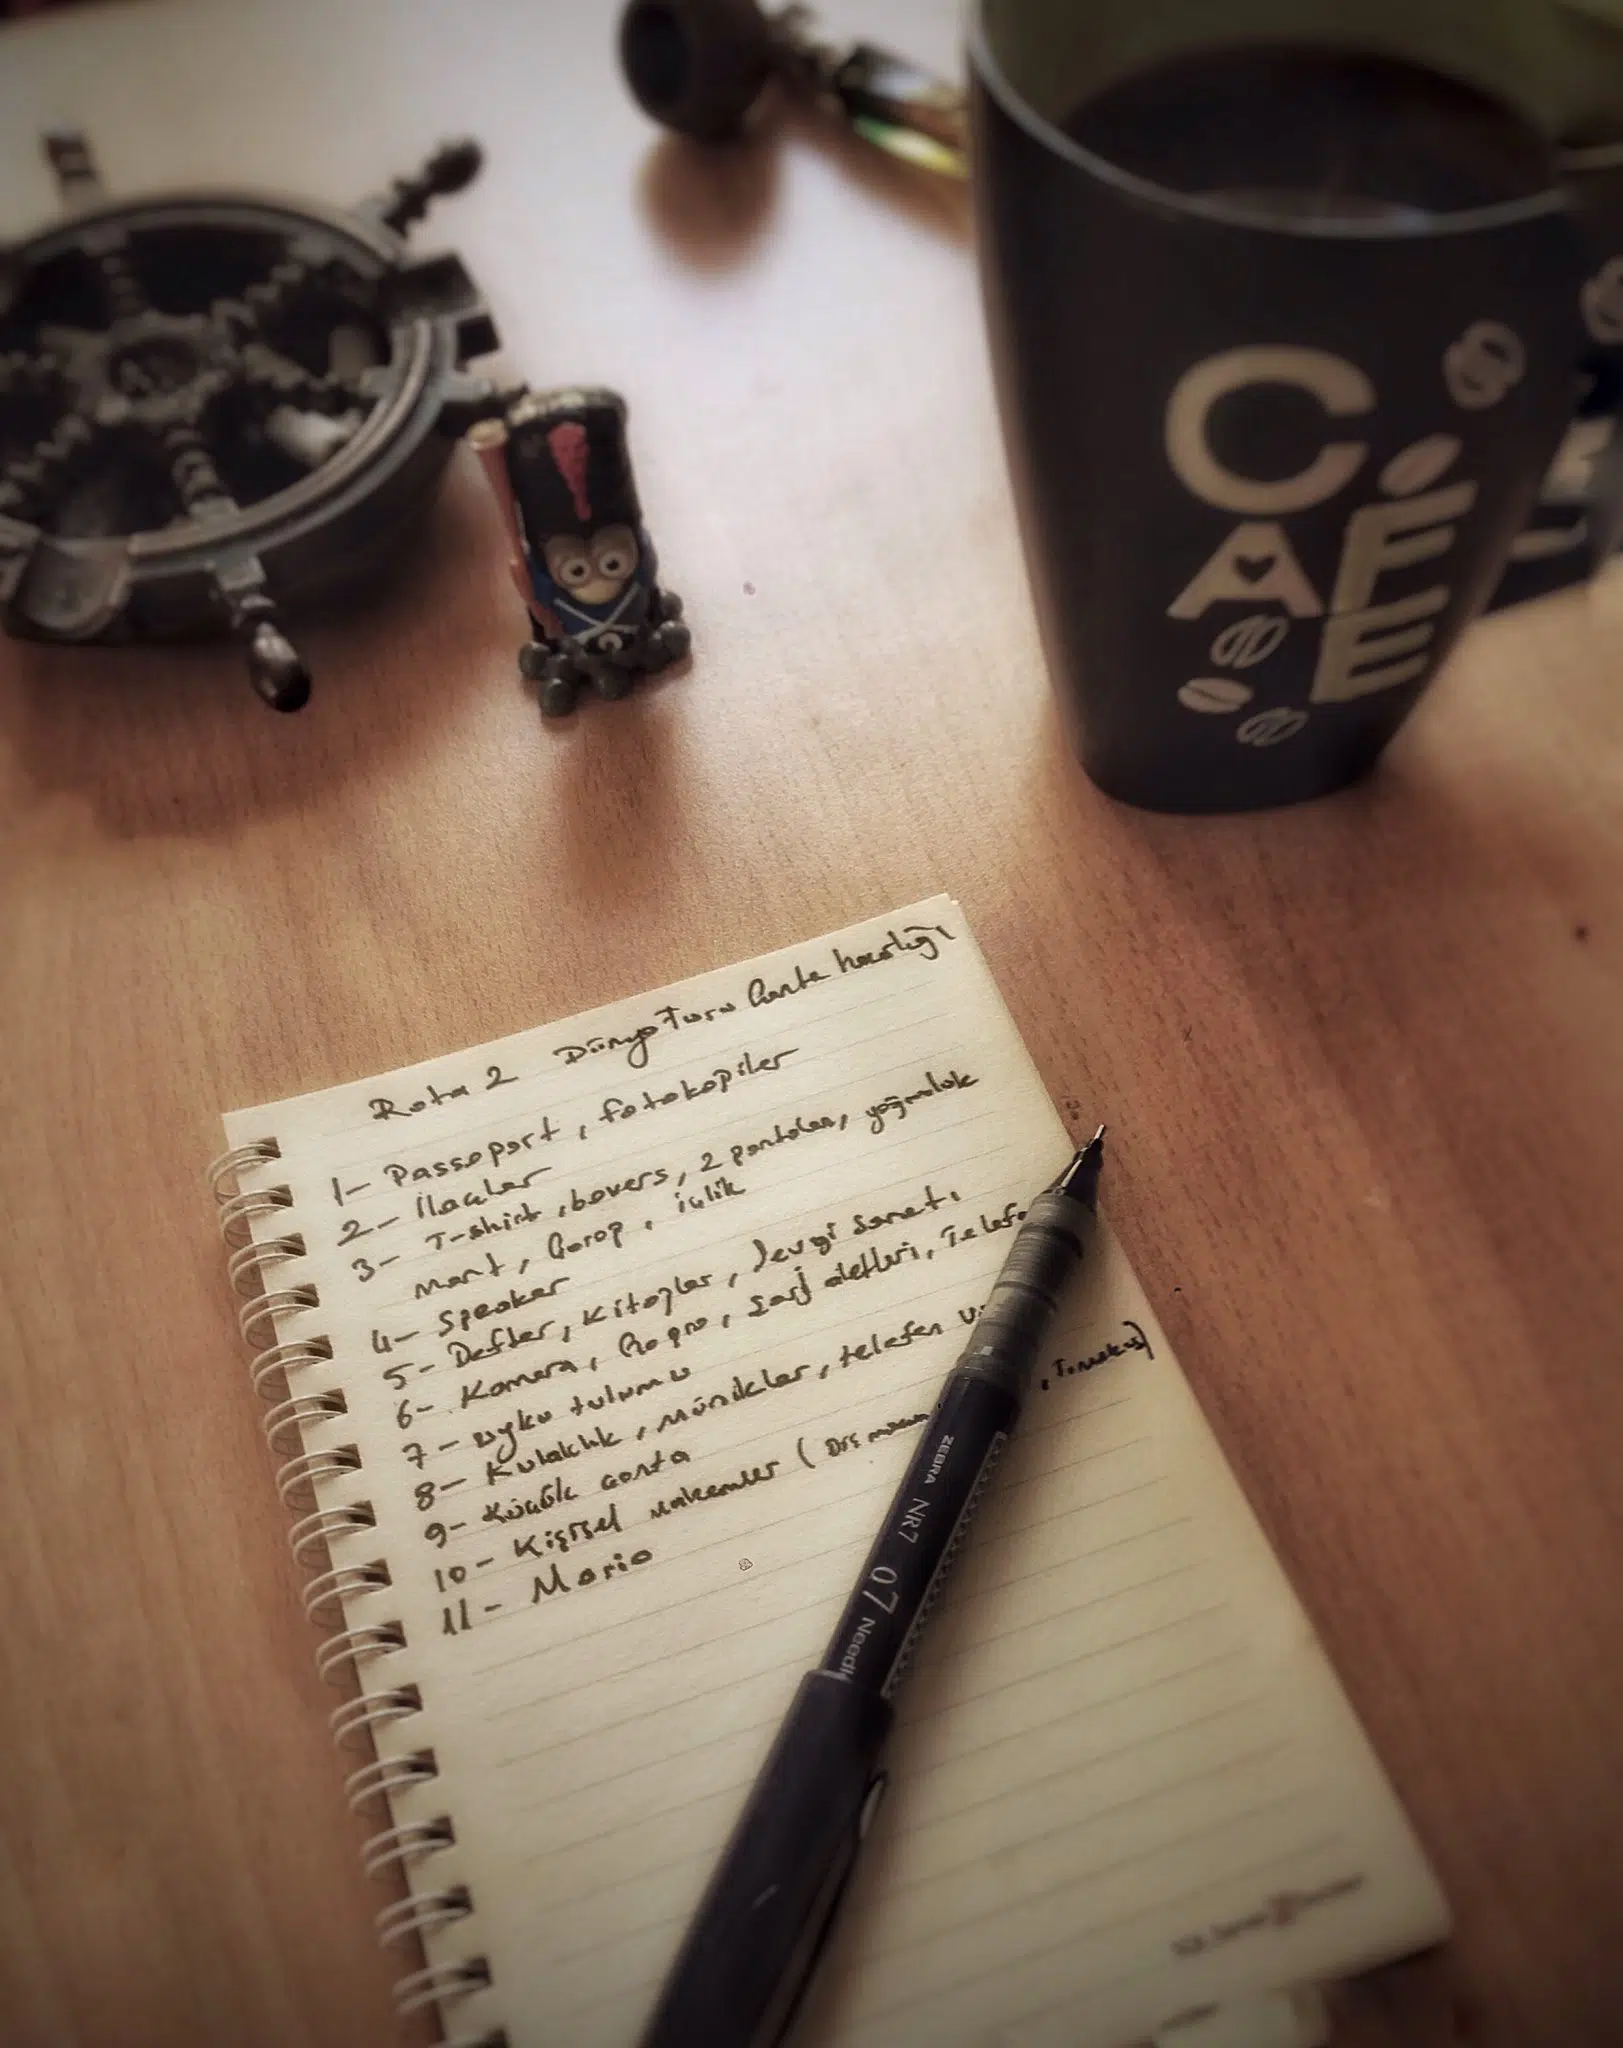 CAFE
Rota 2 Dünya Turu Çanta hazırlığı
1- Passaport, fotokopiler
2- İlaçlar
3- T-shirt, boxers, 2 pantolon, yağmurluk
mont, Çorap, içlik
4- Speaker
5- Defter, Kitaplar, Sevgi Sanatı,
6- Kamera, Gopro, Şarj aletleri, Telefo
7- uyku tulumu
8- Kulaklık, Müzikler, telefon
9- Küçük çanta
10- Kişisel malzemeler (Diş , Tırnakas)
11- Mario
ZEBRA NR7 0.7 Needl